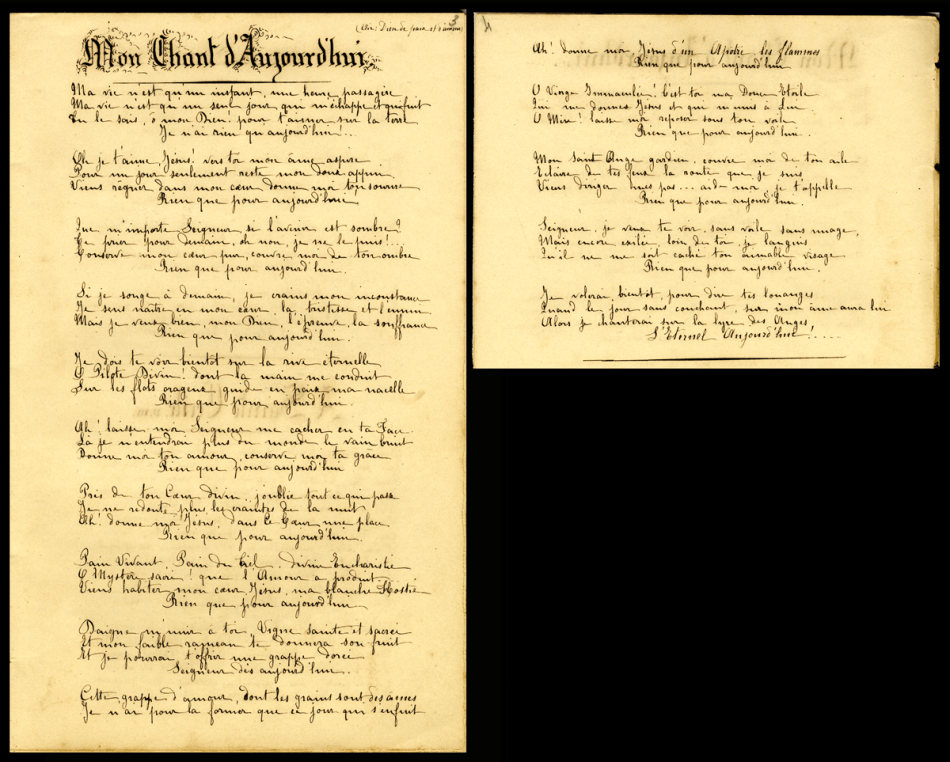 3
(Air: Dieu de paix et d'amour)
Mon Chant d'Aujourd'hui.
Ma vie n'est qu'un instant, une heure passagère
Ma vie n'est qu'un seul jour, qui m'échappe et qui fuit
Tu le sais, ô mon Dieu! pour t'aimer sur la terre
Je n'ai rien qu'aujourd'hui!...
Oh je t'aime, Jésus! vers toi mon âme aspire
Pour un jour seulement reste mon doux appui.
Viens régner dans mon cœur donne moi ton sourire
Rien que pour aujourd'hui
Que m'importe Seigneur, si l'avenir est sombre?
Te prier pour demain, oh non, je ne le puis!..
Conserve mon cœur pur, couvre moi de ton ombre
Rien que pour aujourd'hui.
Si je songe à demain, je crains mon inconstance
Je sens naître en mon cœur, la tristesse et l'ennui
Mais je veux bien, mon Dieu, l'épreuve, la souffrance
Rien que pour aujourd'hui.
Je dois te voir bientôt sur la rive éternelle
O Pilote Divin! dont la main me conduit
Sur les flots orageux guide en paix ma nacelle
Rien que pour aujourd'hui.
Ah! laisse moi Seigneur me cacher en ta Face
Là je n'entendrai plus du monde le vain bruit
Donne moi ton amour, conserve moi ta grâce
Rien que pour aujourd'hui
Près de ton Cœur divin, j'oublie tout ce qui passe
Je ne redoute plus les craintes de la nuit
Ah! donne moi Jésus, dans ce Cœur une place
Rien que pour aujourd'hui.
Pain Vivant, Pain du Ciel, divine Eucharistie
O Mystère sacré! que l'Amour a produit
Viens habiter mon cœur, Jésus, ma blanche Hostie
Rien que pour aujourd'hui
Daigne m'unir à toi, Vigne sainte et sacrée
Et mon faible rameau te donnera son fruit
Et je pourrai t'offrir une grappe dorée
Seigneur dès aujourd'hui.
Cette grappe d'amour, dont les grains sont des âmes
Je n'ai pour la former que ce jour qui s'enfuit
4
Ah! donne moi Jésus d'un Apôtre les flammes
Rien que pour aujourd'hui
O Vierge Immaculée! C'est toi ma Douce Etoile
Qui me donnes Jésus et qui m'unis à Lui
O Mère! laisse moi reposer sous ton voile
Rien que pour aujourd'hui.
Mon Saint Ange gardien, couvre moi de ton aile
Eclaire de tes feux la route que je suis
Viens diriger mes pas... aide moi, je t'appelle
Rien que pour aujourd'hui.
Seigneur, je veux te voir, sans voile sans nuage,
Mais encore exilée, loin de toi, je languis
Qu'il ne me soit caché ton aimable visage
Rien que pour aujourd'hui.
Je volerai bientôt, pour dire tes louanges
Quand le jour sans couchant, sur mon âme aura lui
Alors je chanterai sur la lyre des Anges
L'Eternel Aujourd'hui!.....